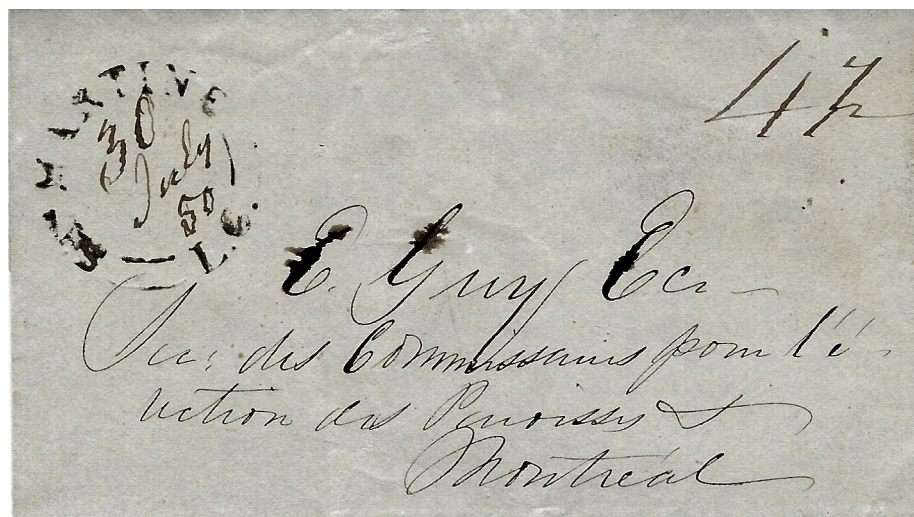 30
July
50
4½
E. Guy Ecr
Sec: des Commissaires pour l'é-
rection des Paroisses &
Montréal